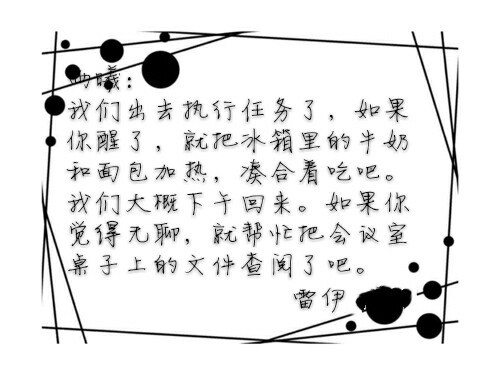 曦：
我们出去执行任务了，如果
你醒了，就把冰箱里的牛奶
和面包加热，凑合着吃吧。
我们大概下午回来。如果你
觉得无聊，就帮忙把会议室
桌子上的文件查阅了吧。
雷伊